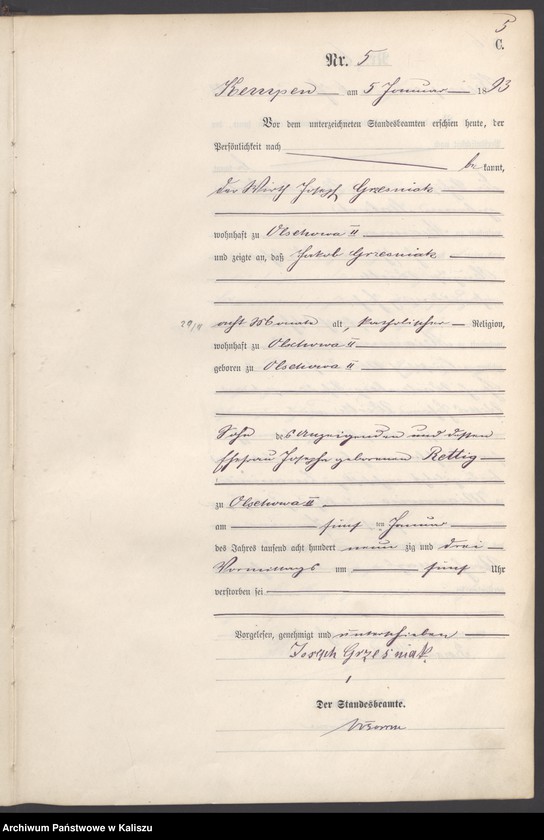 5
C.
Nr. 5
Kempen am 5 Januar 1893
Vor dem unterzeichneten Standesbeamten erschien heute, der
Persönlichkeit nach
be kannt,
der Wirth Joseph Grzesniak
wohnhaft zu Olschowa II
und zeigte an, daß Jakob Grzesniak
acht Monate alt, katholischer Religion,
wohnhaft zu Olschowa II
geboren zu Olschowa II
Sohn des Anzeigenden und dessen
Ehefrau Josepha geborenen Rettig
zu Olschowa II
am fünf ten Januar
des Jahres tausend acht hundert neun zig und drei
Vormittags um fünf Uhr
verstorben sei
Vorgelesen, genehmigt und unterschrieben
Joseph Grześniak
Der Standesbeamte.
Archiwum Państwowe w Kaliszu